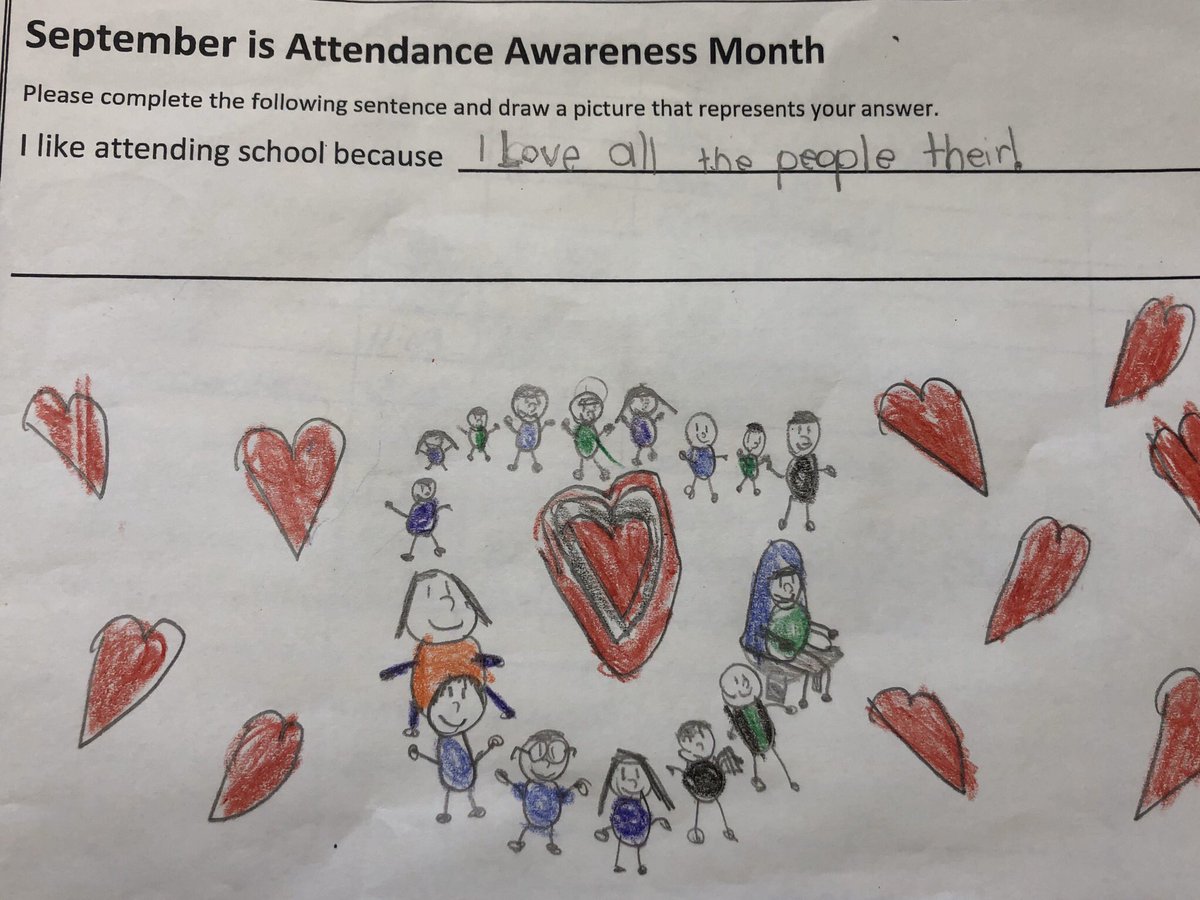 September is Attendance Awareness Month
Please complete the following sentence and draw a picture that represents your answer.
I like attending school because I Love all the people their!